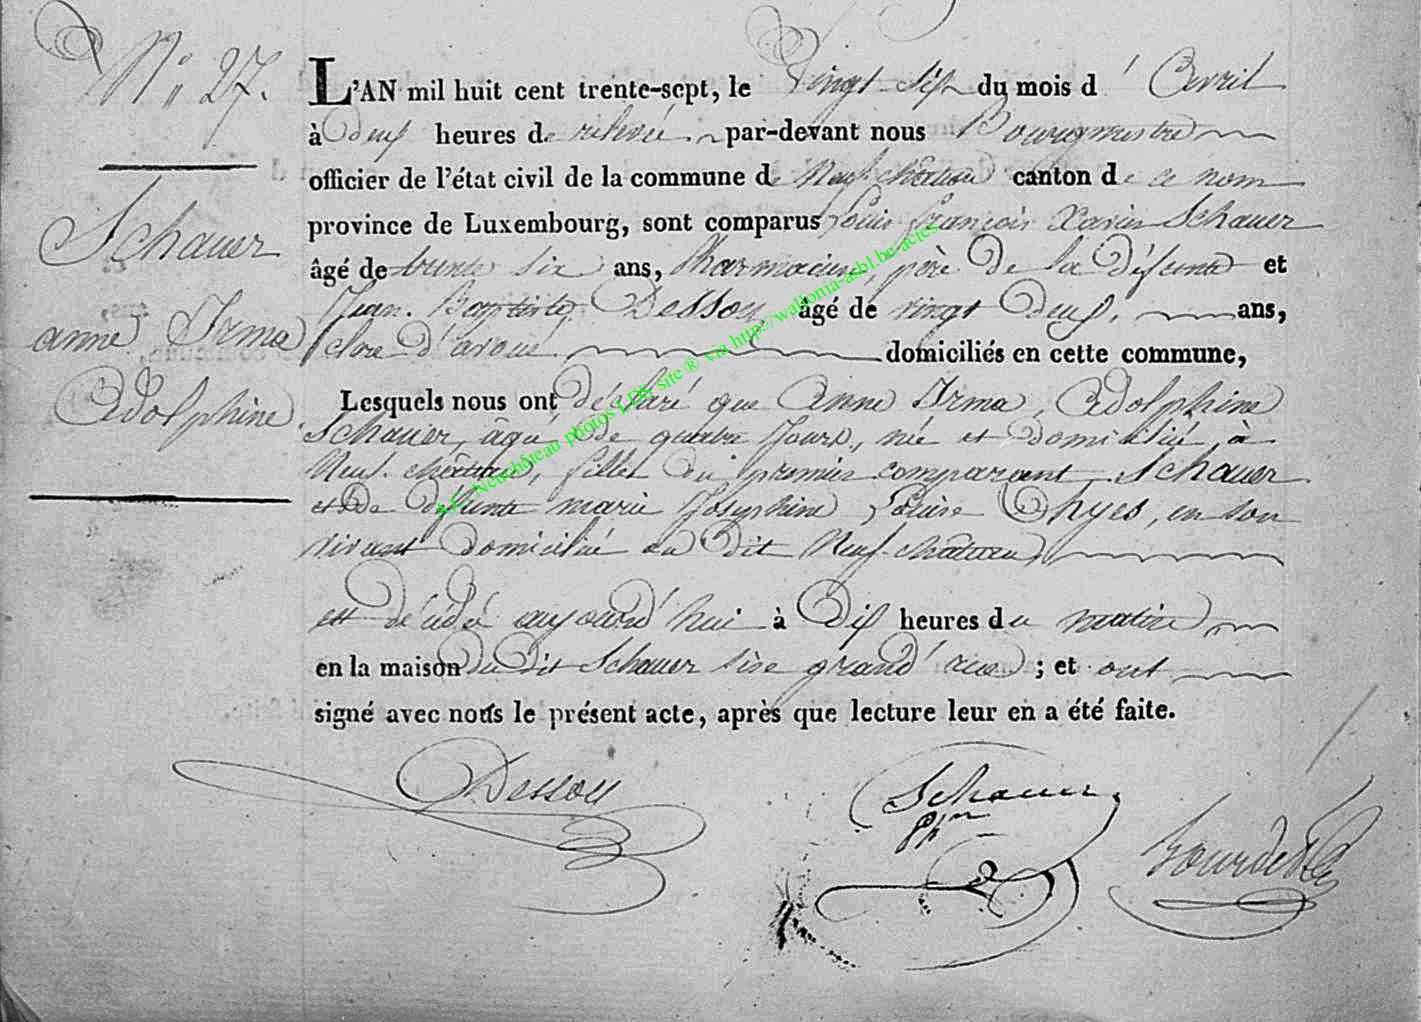 N° 27.
Schauer
anne Irma
Adolphine.
L'AN mil huit cent trente-sept, le Vingt Six du mois d'Avril
à Deux heures de relevée par-devant nous Bourgmestre
officier de l'état civil de la commune de Neufchâteau canton de ce nom
province de Luxembourg, sont comparus Louis François Xavier Schauer
âgé de trente six ans, Pharmacien, père De la Défunte et
Jean Baptiste Dessoy, âgé de vingt Deux, ans,
clerc d'avoué domiciliés en cette commune,
Lesquels nous ont déclaré que Anne Irma Adolphine
Schauer, âgée de quatre Jours, née et Domiciliée à
Neufchâteau, fille du premier comparant Schauer
et De Défunte marie Josephine Louise Thyes, en son
vivant Domiciliée au Dit Neufchâteau
est décédée aujourd'hui à Dix heures du matin
en la maison du Dit Schauer sise grand'rue ; et ont
signé avec nous le présent acte, après que lecture leur en a été faite.
Dessoy
Schauer
phn
A.C. Neufchâteau photos LDS site ® via http://wallonia-asbl.be/actes